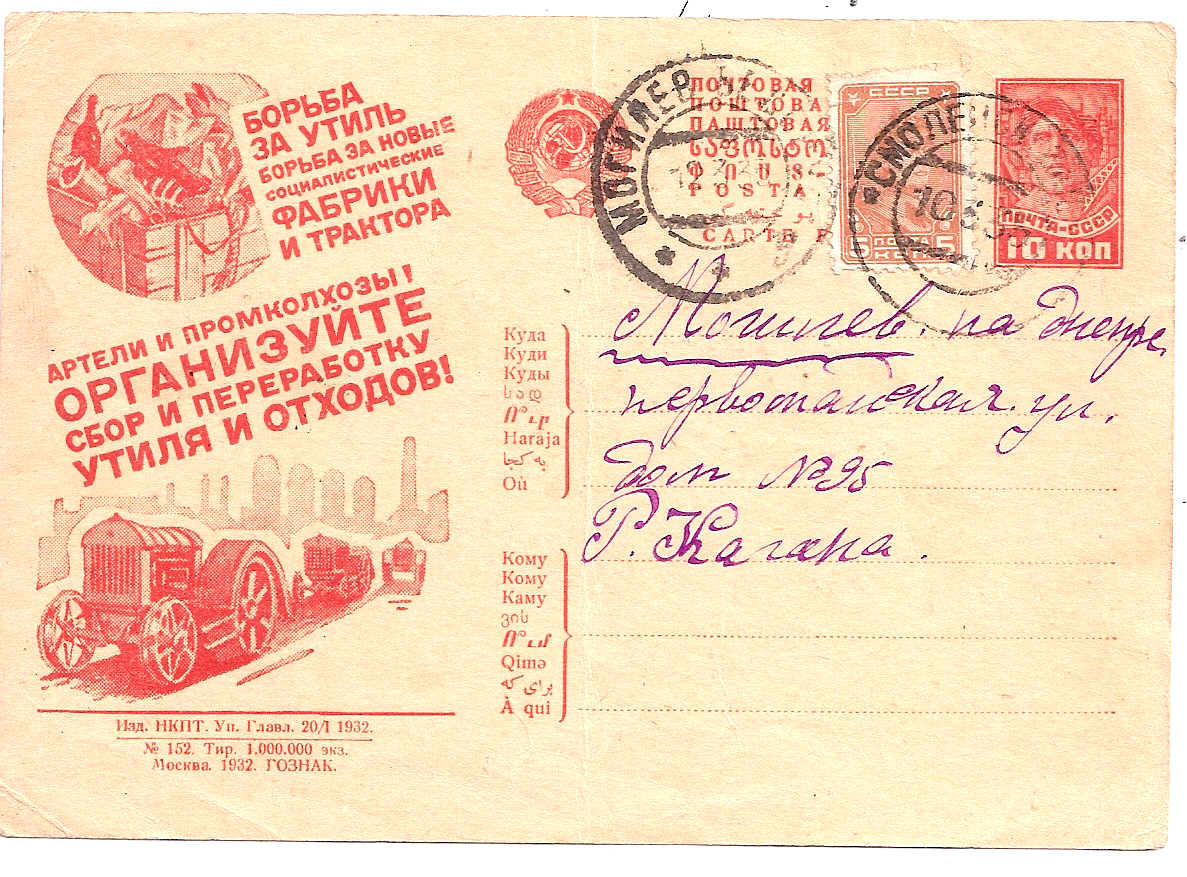 БОРЬБА
ЗА УТИЛЬ
БОРЬБА ЗА НОВЫЕ
СОЦИАЛИСТИЧЕСКИЕ
ФАБРИКИ
И ТРАКТОРА
АРТЕЛИ И ПРОМКОЛХОЗЫ!
ОРГАНИЗУЙТЕ
СБОР И ПЕРЕРАБОТКУ
УТИЛЯ И ОТХОДОВ!
Изд. НКПТ. Уп. Главл. 20/I 1932.
№ 152. Тир. 1.000.000 экз.
Москва. 1932. ГОЗНАК.
ПОЧТОВАЯ
ПОШТОВА
ПАШТОВАЯ
ՓՈՍՏ
POSTA
CARTE P
МОГИЛЕВ
СССР
ПОЧТА
5 КОП. 5
СМОЛЕНСК
10 3 33
ПОЧТА-СССР
10 КОП
Куда
Куди
Куды
სად
Ո՞ւր
Haraja
به کجا
Où
Могилев. на днепре.
первомайская. ул.
дом №95
Р. Кагана.
Кому
Кому
Каму
ვის
Ո՞ւմ
Qimə
برای که
À qui